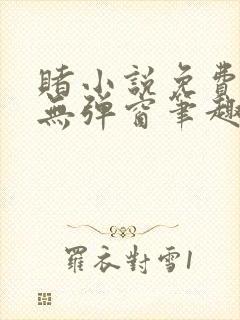 賭小説免費
無彈窗筆趣
羅衣對雪1